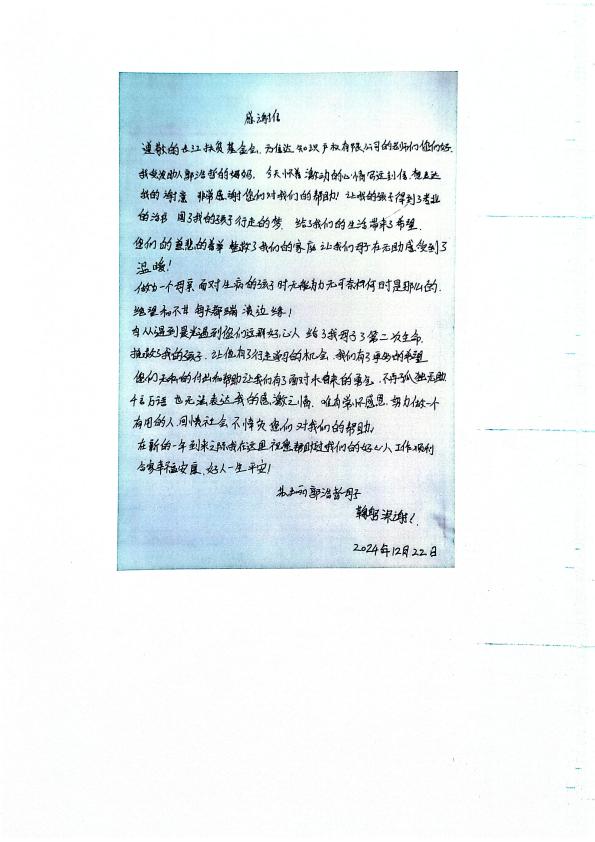 感谢信
尊敬的长江扶贫基金会、方信达知识产权有限公司的老师们您们好.
我是受助人郭浩哲的妈妈,今天怀着激动的心情写这封信,想表达
我的谢意 非常感谢您们对我们的帮助!让我的孩子得到了专业
的治疗 圆了我的孩子行走的梦.给了我们的生活带来了希望.
您们的慈悲的善举 拯救了我们的家庭 让我们母子在无助感受到了
温暖!
做为一个母亲面对生病的孩子时无能为力无可奈何何时是那么的.
绝望和不甘 每天都踹 溃边缘!
自从遇到晨光遇到您们这群好心人 给了我母子了第二次生命.
拯救了我的孩子.让他有了行走学习的机会.我们有了重生的希望
您们无私的付出和帮助让我们有了面对未来的勇气,不再孤独无助.
千言万语 也无法表达我的感激之情.唯有常怀感恩,努力做一个
有用的人,回情社会,不辜负您们对我们的帮助!
在新的一年到来之际我在这里祝愿帮助过我们的好心人工作顺利
合家幸福安康,好人一生平安!
郭浩哲母子
鞠躬深谢!
2024年12月22日